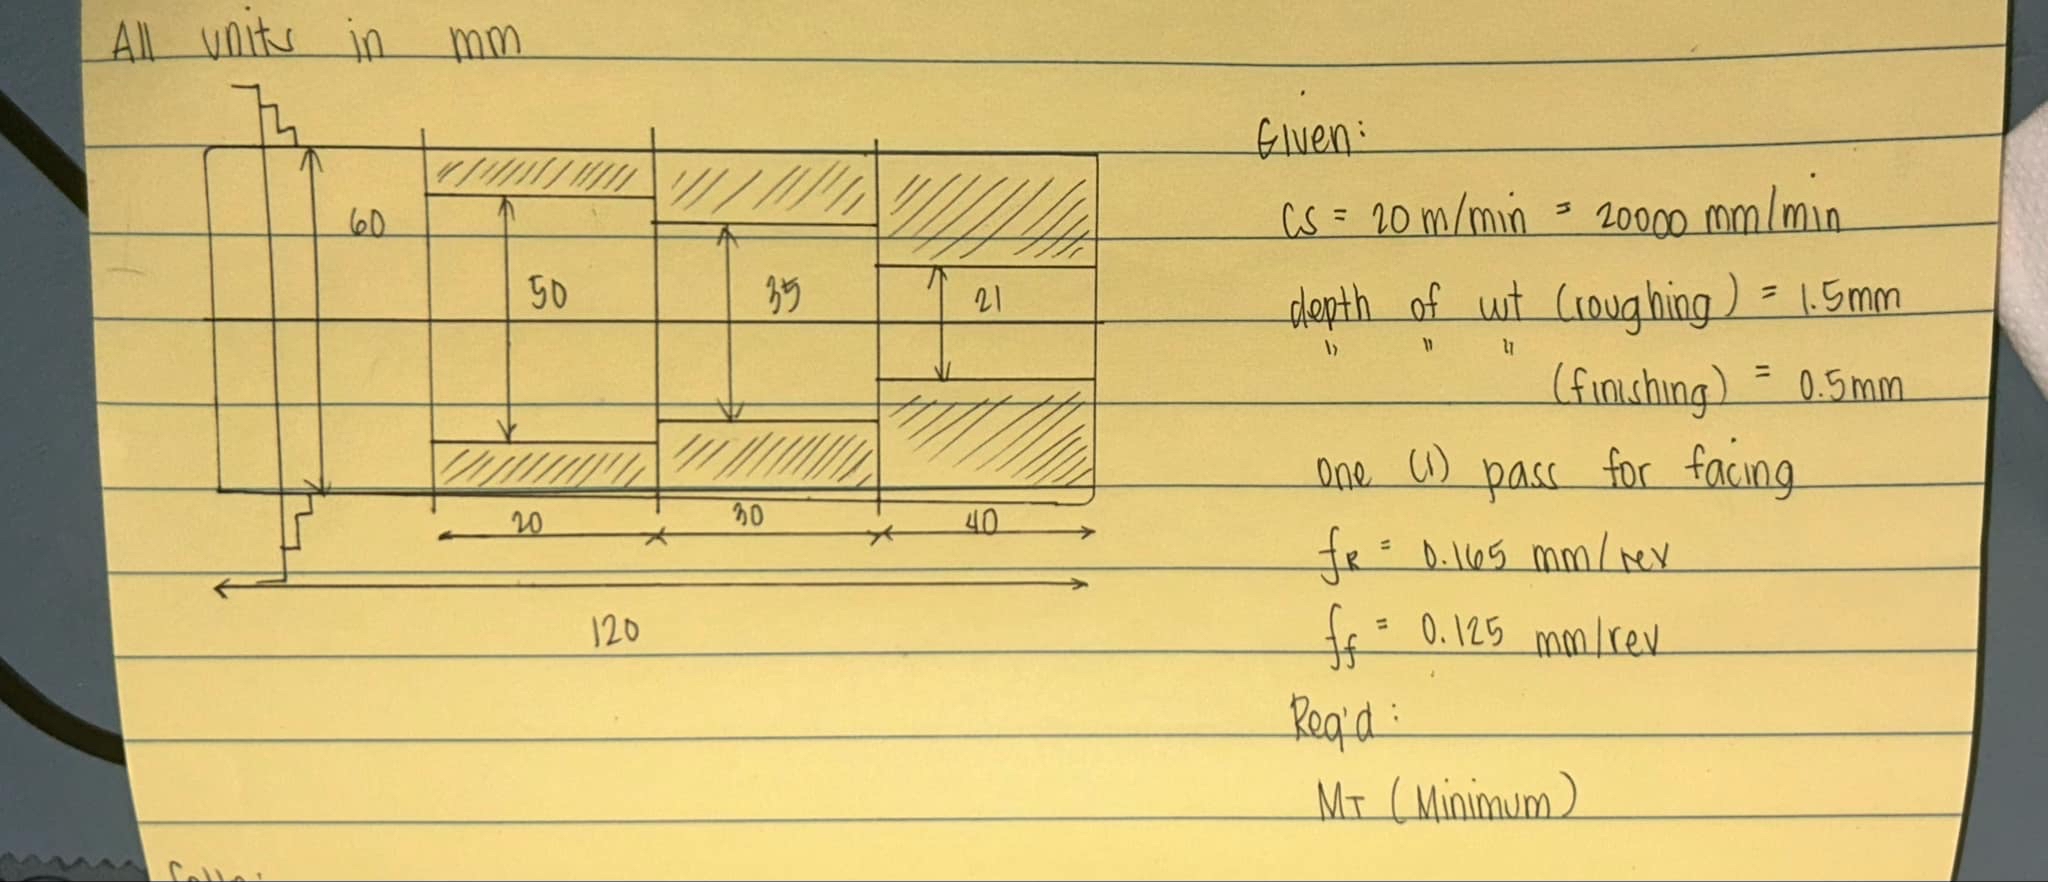 All units in mm
60
50
35
21
20
30
40
120
Given:
CS = 20 m/min = 20000 mm/min
depth of cut (roughing) = 1.5mm
" " " (finishing) = 0.5mm
one (1) pass for facing
fR = 0.165 mm/rev
ff = 0.125 mm/rev
Req'd:
MT (Minimum)